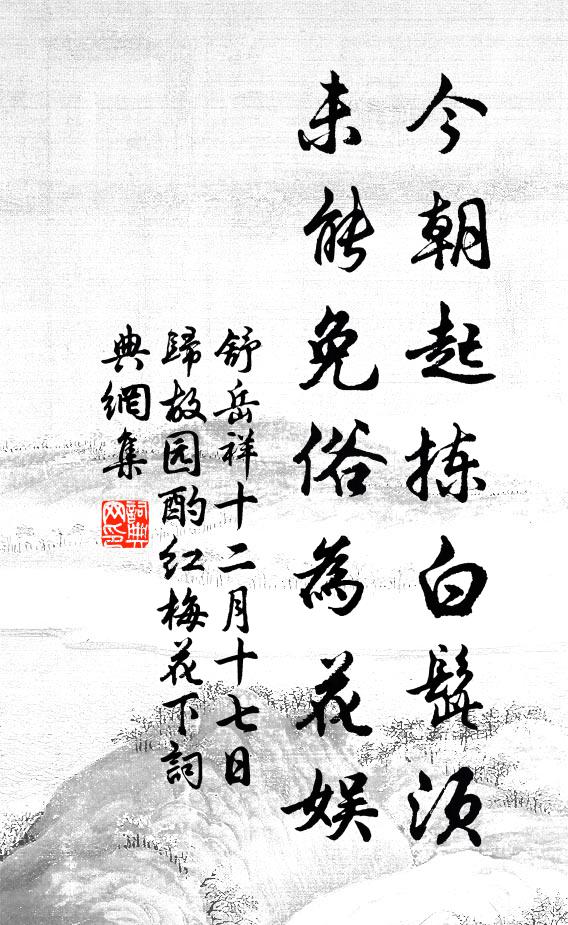 今朝起拣白髭须
未能免俗為花娱
舒岳祥十二月十七日
歸故园酌红梅花下詞
典網集
詞典网印